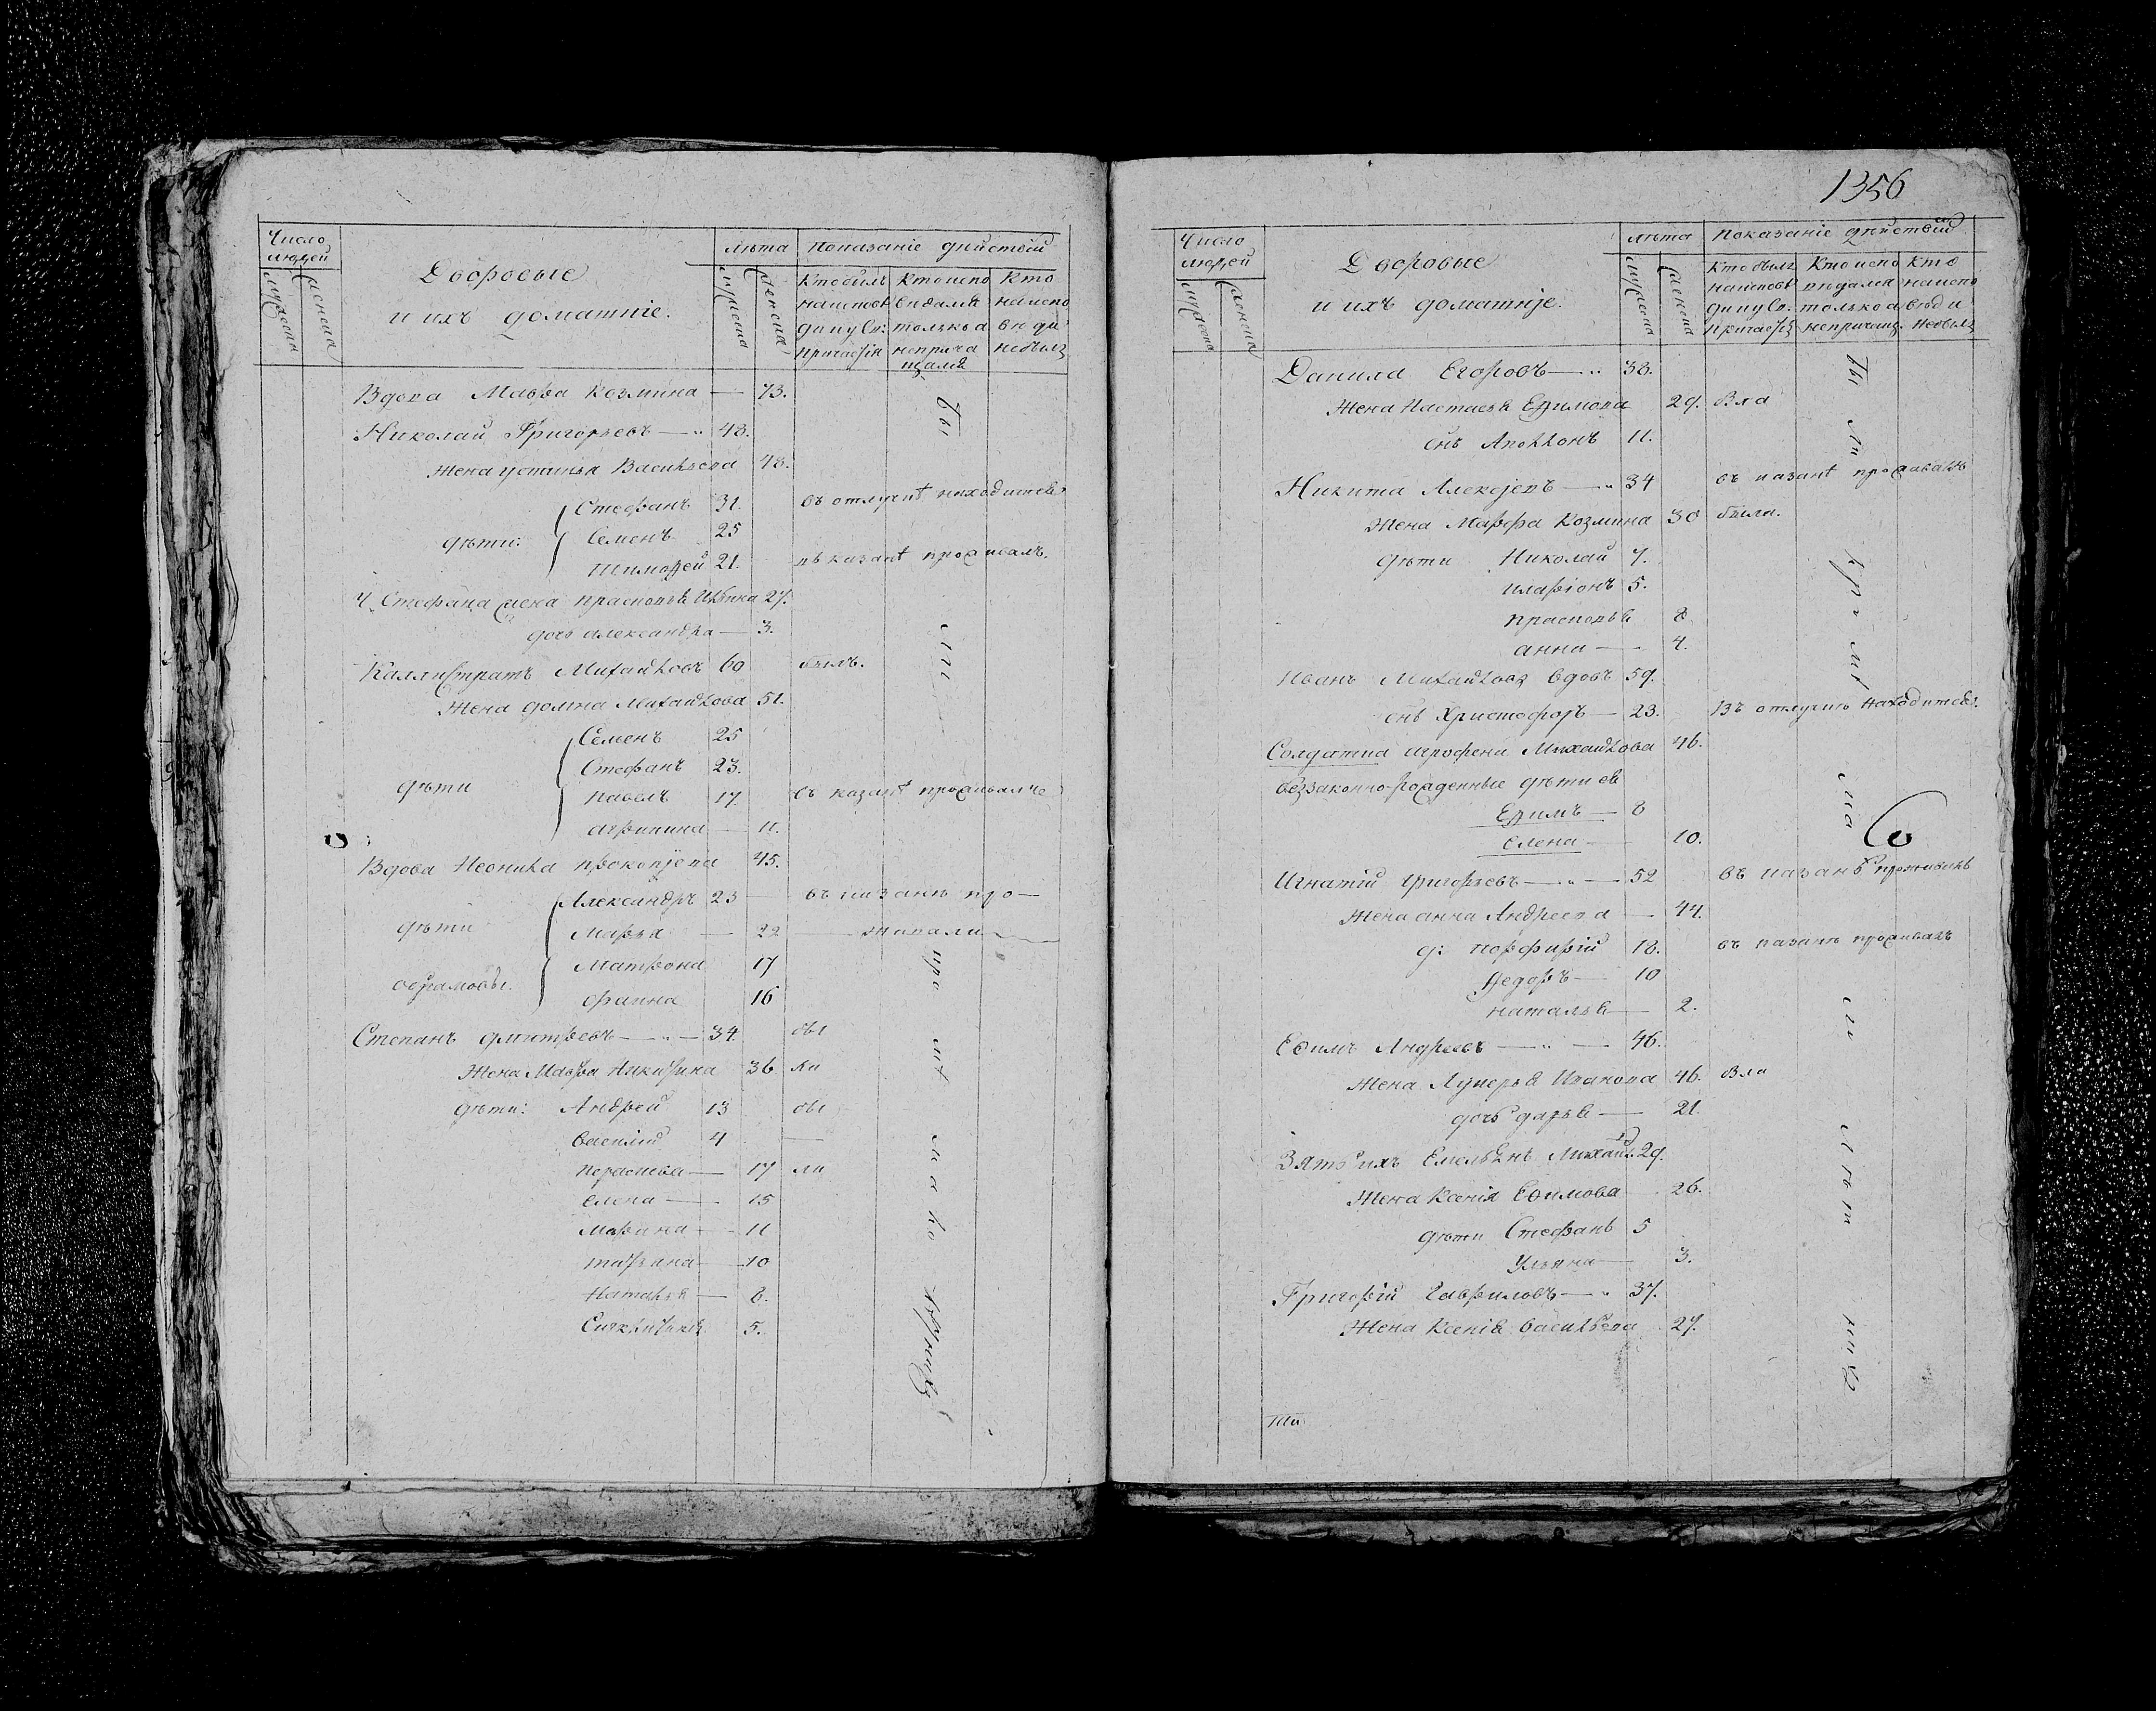 Число людей
мужеска
женска
Дворовые
и ихъ домашніе.
лѣта
мужеска
женска
показаніе дѣйствій
Кто былъ на исповѣди и у Св: причастія
Кто исповѣдался только а не причащался
Кто на исповѣди не былъ
Вдова Мавра Козмина — 73.
Николай Григорьевъ — 48.
Жена Устинья Васильева 48.
дѣти: Стефанъ 31. въ отлучкѣ находится
Семенъ 25
Тимоѳей 21. въ казанѣ проживалъ.
У Стефана жена Прасковья Ильина 27.
дочь александра — 3.
Каллистратъ Михайловъ 60 былъ.
Жена домна Михайлова 51.
дѣти Семенъ 25
Стефанъ 23.
павелъ 17 въ казанѣ проживалъ
агрипина — 11.
Вдова Неонила прокопьева 45.
дѣти Александръ 23 — въ казанѣ про—
Марья — 22 — живали
Матрона 17
фаина 16
Степанъ дмитревъ — 34 бы
Жена Мавра Никитина 36 ли
дѣти: Андрей 13 бы
василій 4 —
параскева — 17 ли
елена — 15
Марина — 11
татьана — 10
Наталья — 8.
5.
1356
Число людей
мужеска
женска
Дворовые
и ихъ домашніе.
лѣта
мужеска
женска
показаніе дѣйствій
Кто былъ на исповѣди и у Св. причастія
Кто исповѣдался только а не причащ.
Кто на исповѣди не былъ
Данила Егоровъ — 38.
Жена Настасья Ефимова 29. вла
сынъ Аполлонъ 11.
Никита Алексѣевъ — 34 въ казанѣ проживалъ
Жена Марѳа Козмина 30 была.
дѣти Николай 7.
иларіонъ 5.
прасковья 8
анна — 4.
Иванъ Михайловъ вдовъ 59.
сынъ Христофоръ — 23. въ отлучкѣ находится.
Солдатка агрофена Михайлова 46.
беззаконно-рожденные дѣти ея
Ефимъ — 8
елена — 10.
Игнатій григорьевъ — 52 въ казанѣ проживалъ
Жена анна Андреева — 44.
д: порфирій 18. въ казанѣ проживалъ
Ѳедоръ — 10
наталья — 2.
Ефимъ Андреевъ — 46.
Жена Лукерья Иванова 46. вла
дочь дарья — 21.
Зять ихъ Емельянъ Михайл. 29.
Жена Ксенія Ефимова 26.
дѣти Стефанъ 5
Ульяна — 3.
Григорій Гавриловъ — 37.
Жена Ксенія васильева 27.